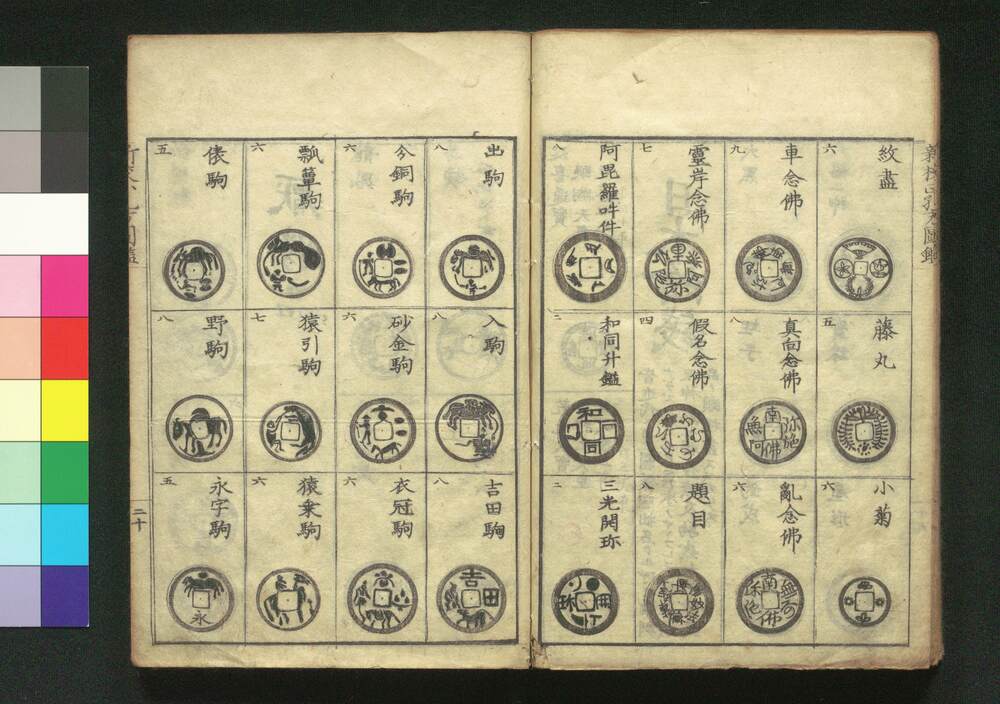 紋盡
六
車念佛
九
靈岸念佛
七
阿毘羅吽件
八
藤丸
五
真向念佛
八
南
弥陀
佛
無阿
假名念佛
四
和同升鑑
二
和
同
小菊
六
亂念佛
六
南
佛
題目
八
三光開珎
二
珎
出駒
八
分銅駒
六
瓢簞駒
六
俵駒
五
入駒
八
砂金駒
六
猿引駒
七
野駒
八
吉田駒
八
吉
田
衣冠駒
六
猿乗駒
六
永字駒
五
永
二十